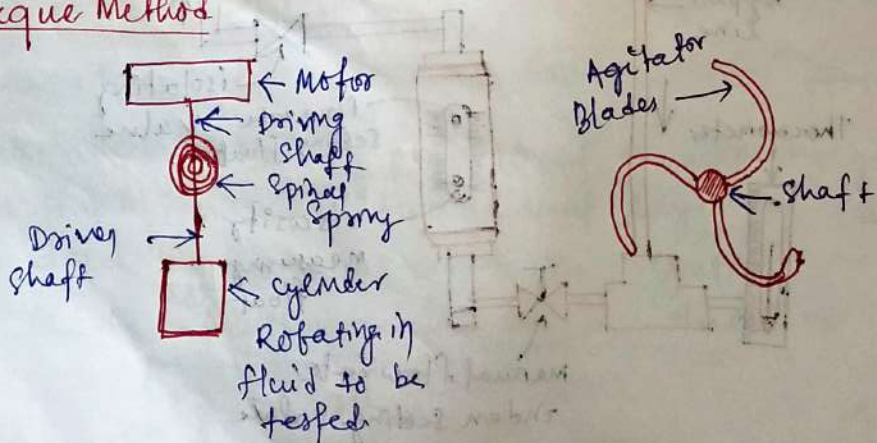 cque Method
Motor
Driving
Shaft
Spiral
Spring
Driven
Shaft
Cylinder
Rotating in
fluid to be
tested
Agitator
Blades
Shaft